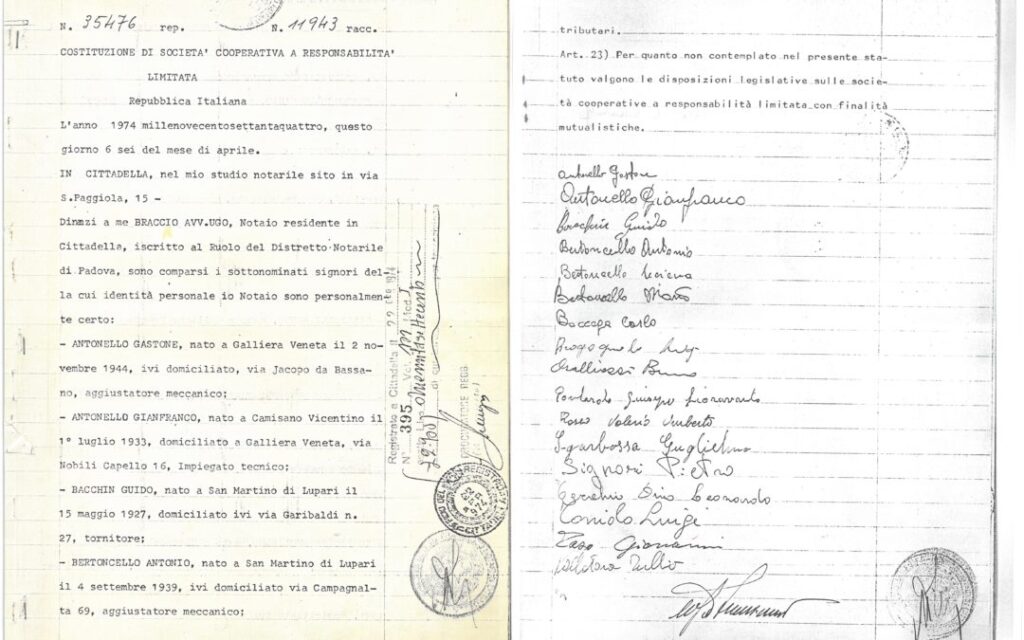 N. 35476 rep. N. 11943 racc.
COSTITUZIONE DI SOCIETA' COOPERATIVA A RESPONSABILITA'
LIMITATA
Repubblica Italiana
L'anno 1974 millenovecentosettantaquattro, questo
giorno 6 sei del mese di aprile.
IN CITTADELLA, nel mio studio notarile sito in via
S.Paggiola, 15 -
Dinnzi a me BRACCIO AVV.UGO, Notaio residente in
Cittadella, iscritto al Ruolo del Distretto Notarile
di Padova, sono comparsi i sottonominati signori del-
la cui identità personale io Notaio sono personalmen
te certo:
- ANTONELLO GASTONE, nato a Galliera Veneta il 2 no-
vembre 1944, ivi domiciliato, via Jacopo da Bassa-
no, aggiustatore meccanico;
- ANTONELLO GIANFRANCO, nato a Camisano Vicentino il
1° luglio 1933, domiciliato a Galliera Veneta, via
Nobili Capello 16, Impiegato tecnico;
- BACCHIN GUIDO, nato a San Martino di Lupari il
15 maggio 1927, domiciliato ivi via Garibaldi n.
27, tornitore;
- BERTONCELLO ANTONIO, nato a San Martino di Lupari
il 4 settembre 1939, ivi domiciliato via Campagnal-
ta 69, aggiustatore meccanico;
Registrato a Cittadella il
N° 395 Vol.
tributari.
Art. 23) Per quanto non contemplato nel presente sta-
tuto valgono le disposizioni legislative sulle socie-
tà cooperative a responsabilità limitata con finalità
mutualistiche.
Antonello Gastone
Antonello Gianfranco
Bacchin Guido
Bertoncello Antonio
Bertoncello
Bertoncello Mario
Boccega Carlo
Bruno
Giuseppe Fioravante
Rosso Valerio Umberto
Sgarbossa Guglielmo
Signori Pietro
Dino Leonardo
Toniolo Luigi
Zaso Giovanni
Tullio